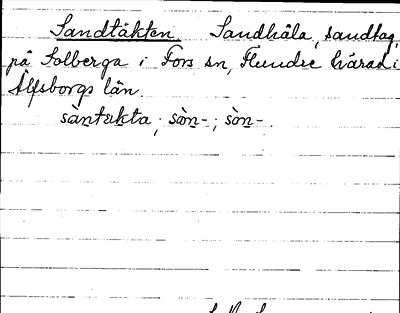 Sandtäkten Sandhåla, sandtag,
på Solberga i Fors sn, Flundre härad i
Älfsborgs län.
sàntækta; sòn-; sòn-